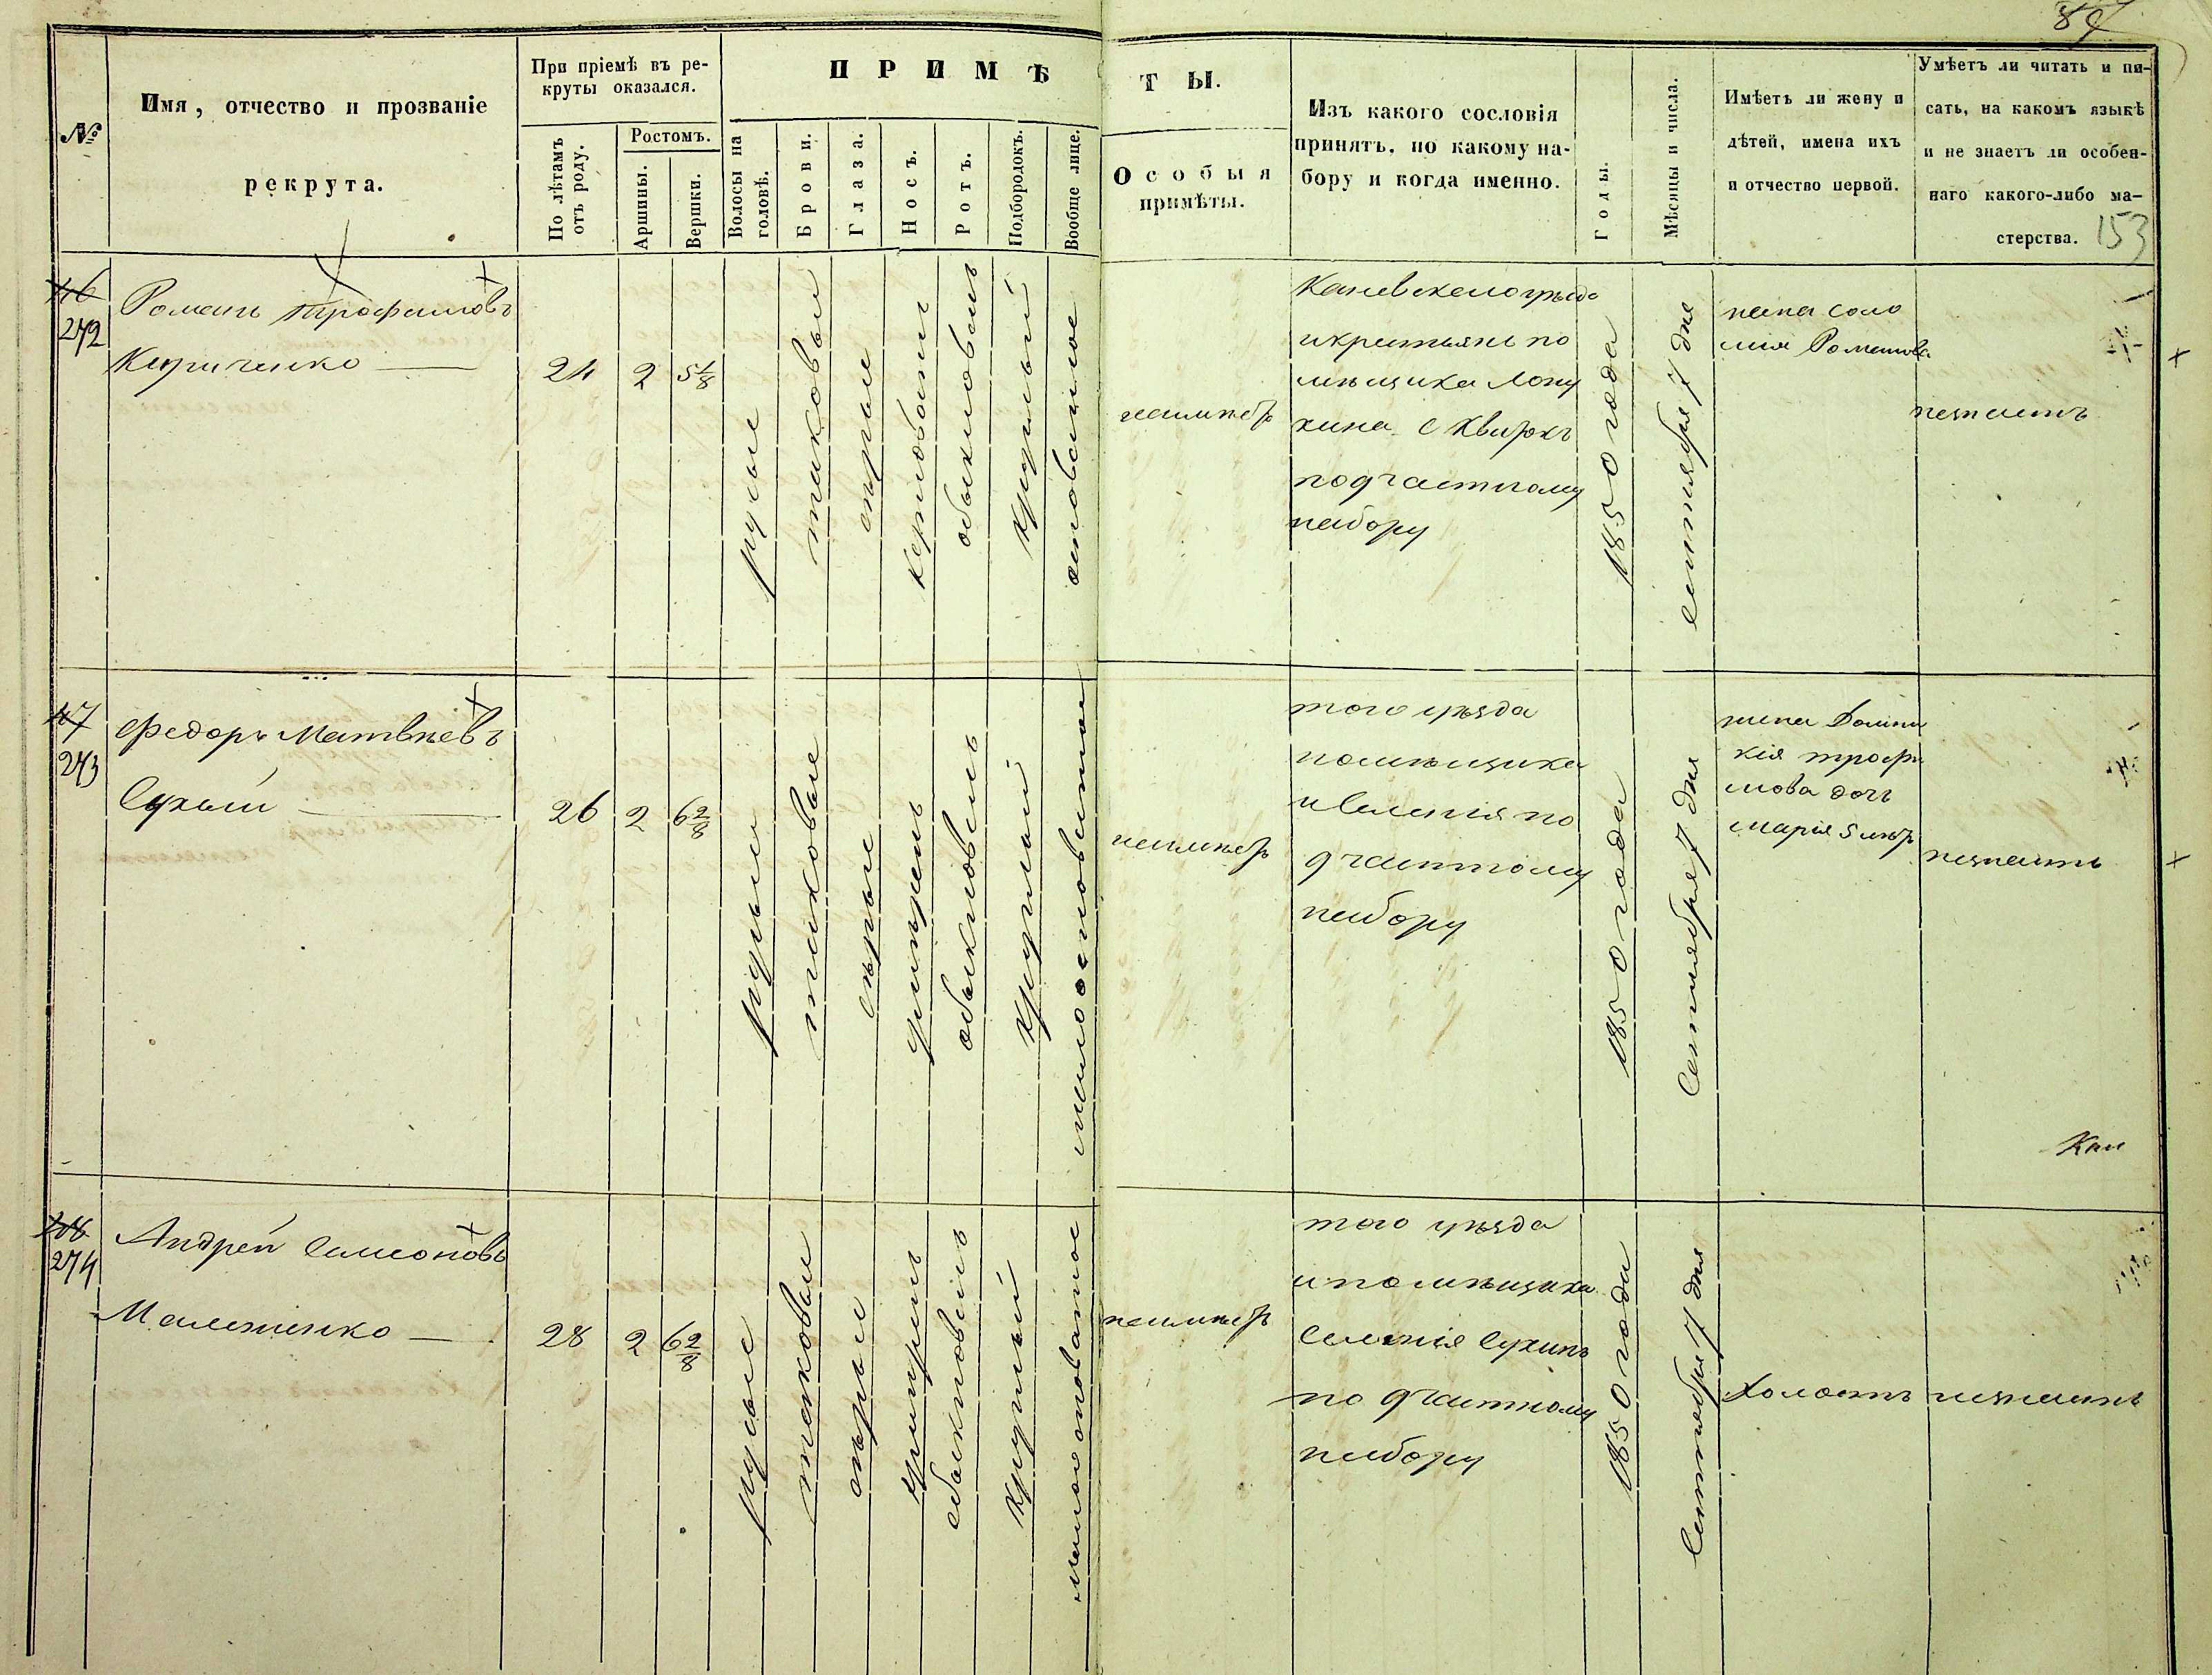 87
№
Имя, отчество и прозваніе
рекрута.
При пріемѣ въ ре-
круты оказался.
По лѣтамъ
отъ роду.
Ростомъ.
Аршины.
Вершки.
ПРИМѢ
ТЫ.
Волосы на
головѣ.
Брови.
Глаза.
Носъ.
Ротъ.
Подбородокъ.
Вообще лице.
Особыя
примѣты.
Изъ какого сословія
принятъ, по какому на-
бору и когда именно.
Годы.
Мѣсяцы и числа.
Имѣетъ ли жену и
дѣтей, имена ихъ
и отчество первой.
Умѣетъ ли читать и пи-
сать, на какомъ языкѣ
и не знаетъ ли особен-
наго какого-либо ма-
стерства.
153
46
272
Романъ Трофимовъ
Кириченко
24
2
5 1/8
русые
таковые
серые
керповатъ
обыкновенъ
круглый
Каневского уезда
помѣщика Лопу
хина с Квитокъ
по 9 частному
набору
1850 года
сентября 7 дня
жена Соло
мия Романова
незнаетъ
47
273
Федоръ Матвѣевъ
Сухый
26
2
6 2/8
русые
таковые
серые
обыкновенъ
круглый
того уѣзда
помѣщика
по
9 частному
набору
1850 года
Сентября 7 дня
жена Домни
кія трофи
мова дочь
марія 5 лѣтъ
незнаетъ
Кан
48
274
Андрей Самсоновъ
28
2
6 2/8
русые
таковые
серые
обыкновенъ
круглый
того уѣзда
и помѣщика
Селенія Сухинъ
по 9 частному
набору
1850 года
Сентября 7 дня
Холостъ
незнаетъ